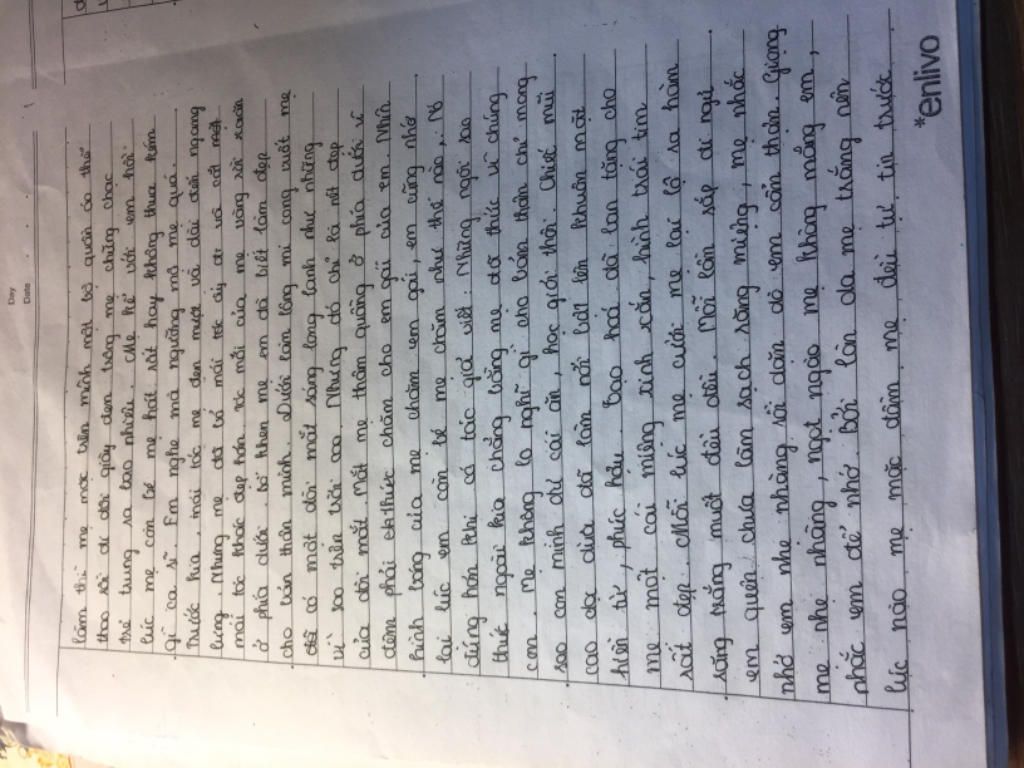 Day
Date
làm thì mẹ mặc trên mình một bộ quần áo thể
thao rồi đi đôi giầy đen trông mẹ chững chạc
trẻ trung ra bao nhiêu. Mẹ kể với em hồi
lúc mẹ còn bé mẹ hát rất hay không thua kém
gì ca sĩ. Em nghe mà ngưỡng mộ mẹ quá.
Trước kia, mái tóc mẹ đen mượt và dài đến ngang
lưng. Nhưng mẹ đã bỏ mái tóc ấy đi và cắt một
mái tóc khác đẹp hơn. Tóc mới của mẹ vàng rồi xoăn
ở phía dưới. Bố khen mẹ em đã biết làm đẹp
cho bản thân mình. Dưới làn lông mi cong vút mẹ
đã có một đôi mắt sáng long lanh như những
vì sao trên trời sa. Nhưng đó chỉ là nét đẹp
của đôi mắt. Mắt mẹ thâm quầng ở phía dưới vì
đêm phải thức chăm cho em gái của em. Nhìn
hình bóng của mẹ chăm em gái, em cũng nhớ
lại lúc em còn bé mẹ chăm như thế nào.
đúng hơn khi có tác giả viết: Những ngôi sao
thức ngoài kia chẳng bằng mẹ đã thức vì chúng
con. Mẹ không lo nghĩ gì cho bản thân chỉ mong
sao con mình đủ cái ăn, học giỏi thôi. Chiếc mũi
cao dọc dừa đã làm nổi bật lên khuôn mặt
hiền từ, phúc hậu. Bao hoá đã lan tặng cho
mẹ một cái miệng xinh xắn, hình trái tim
rất đẹp. Mỗi lúc mẹ cười mẹ lại lộ ra hàm
răng trắng muốt đều đều. Mỗi lần sắp đi ngủ
em quên chưa làm sạch răng miệng, mẹ nhắc
nhở em nhẹ nhàng rồi dặn dò em cẩn thận. Giọng
mẹ nhẹ nhàng, ngọt ngào mẹ không mắng em,
nhắc em để nhớ. Bởi làn da mẹ trắng nên
lúc nào mẹ mặc đầm mẹ đều tự tin trước
*enlivo